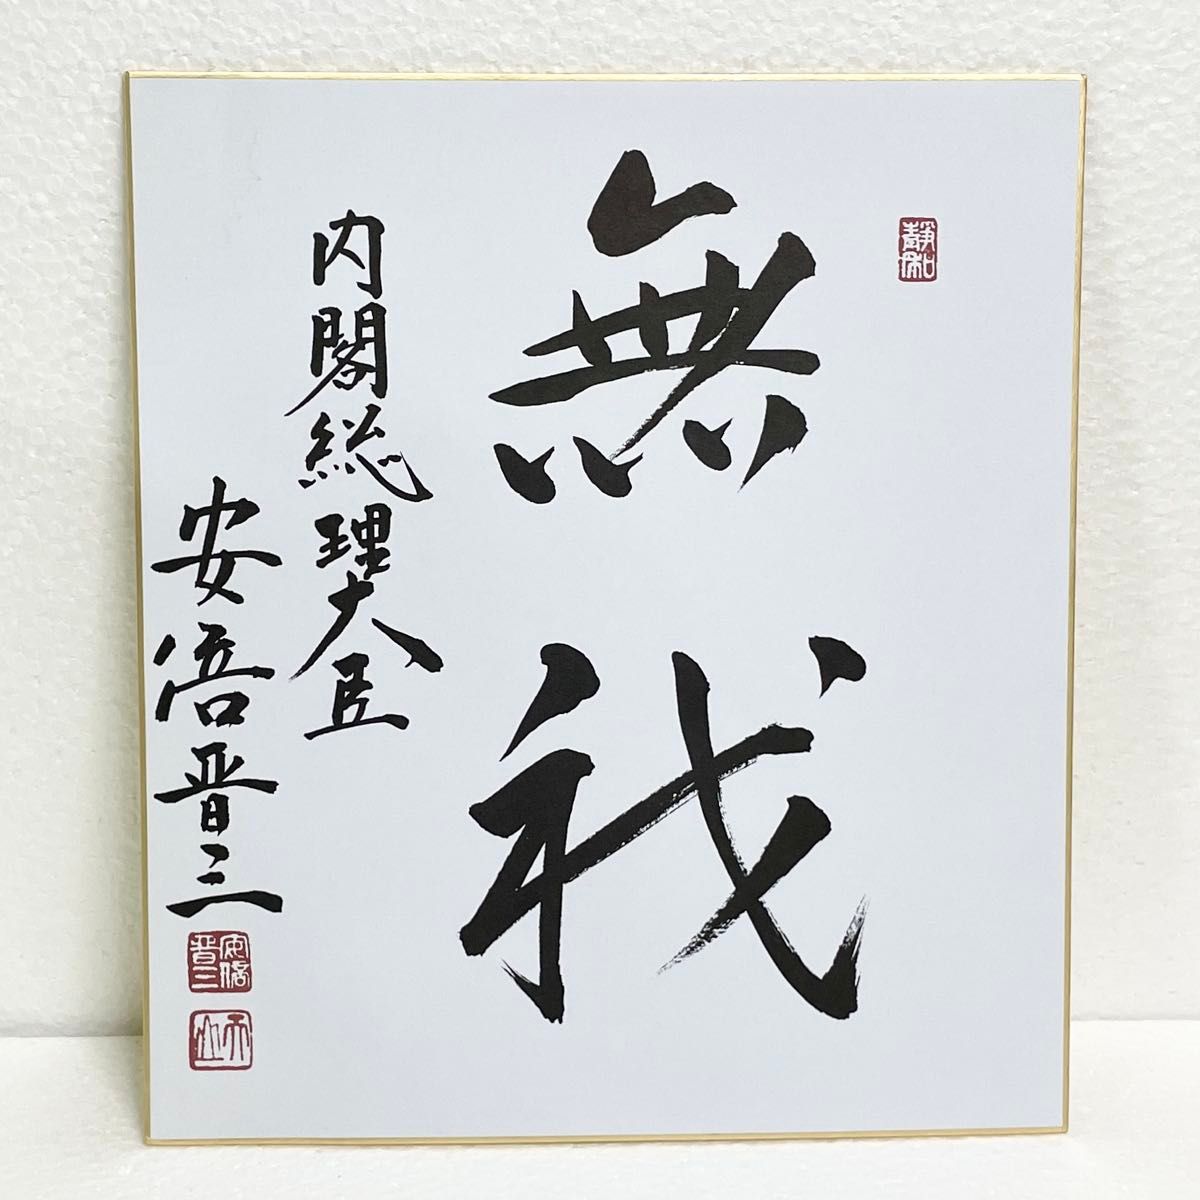 静和
無我
内閣総理大臣
安倍晋三
安倍晋三